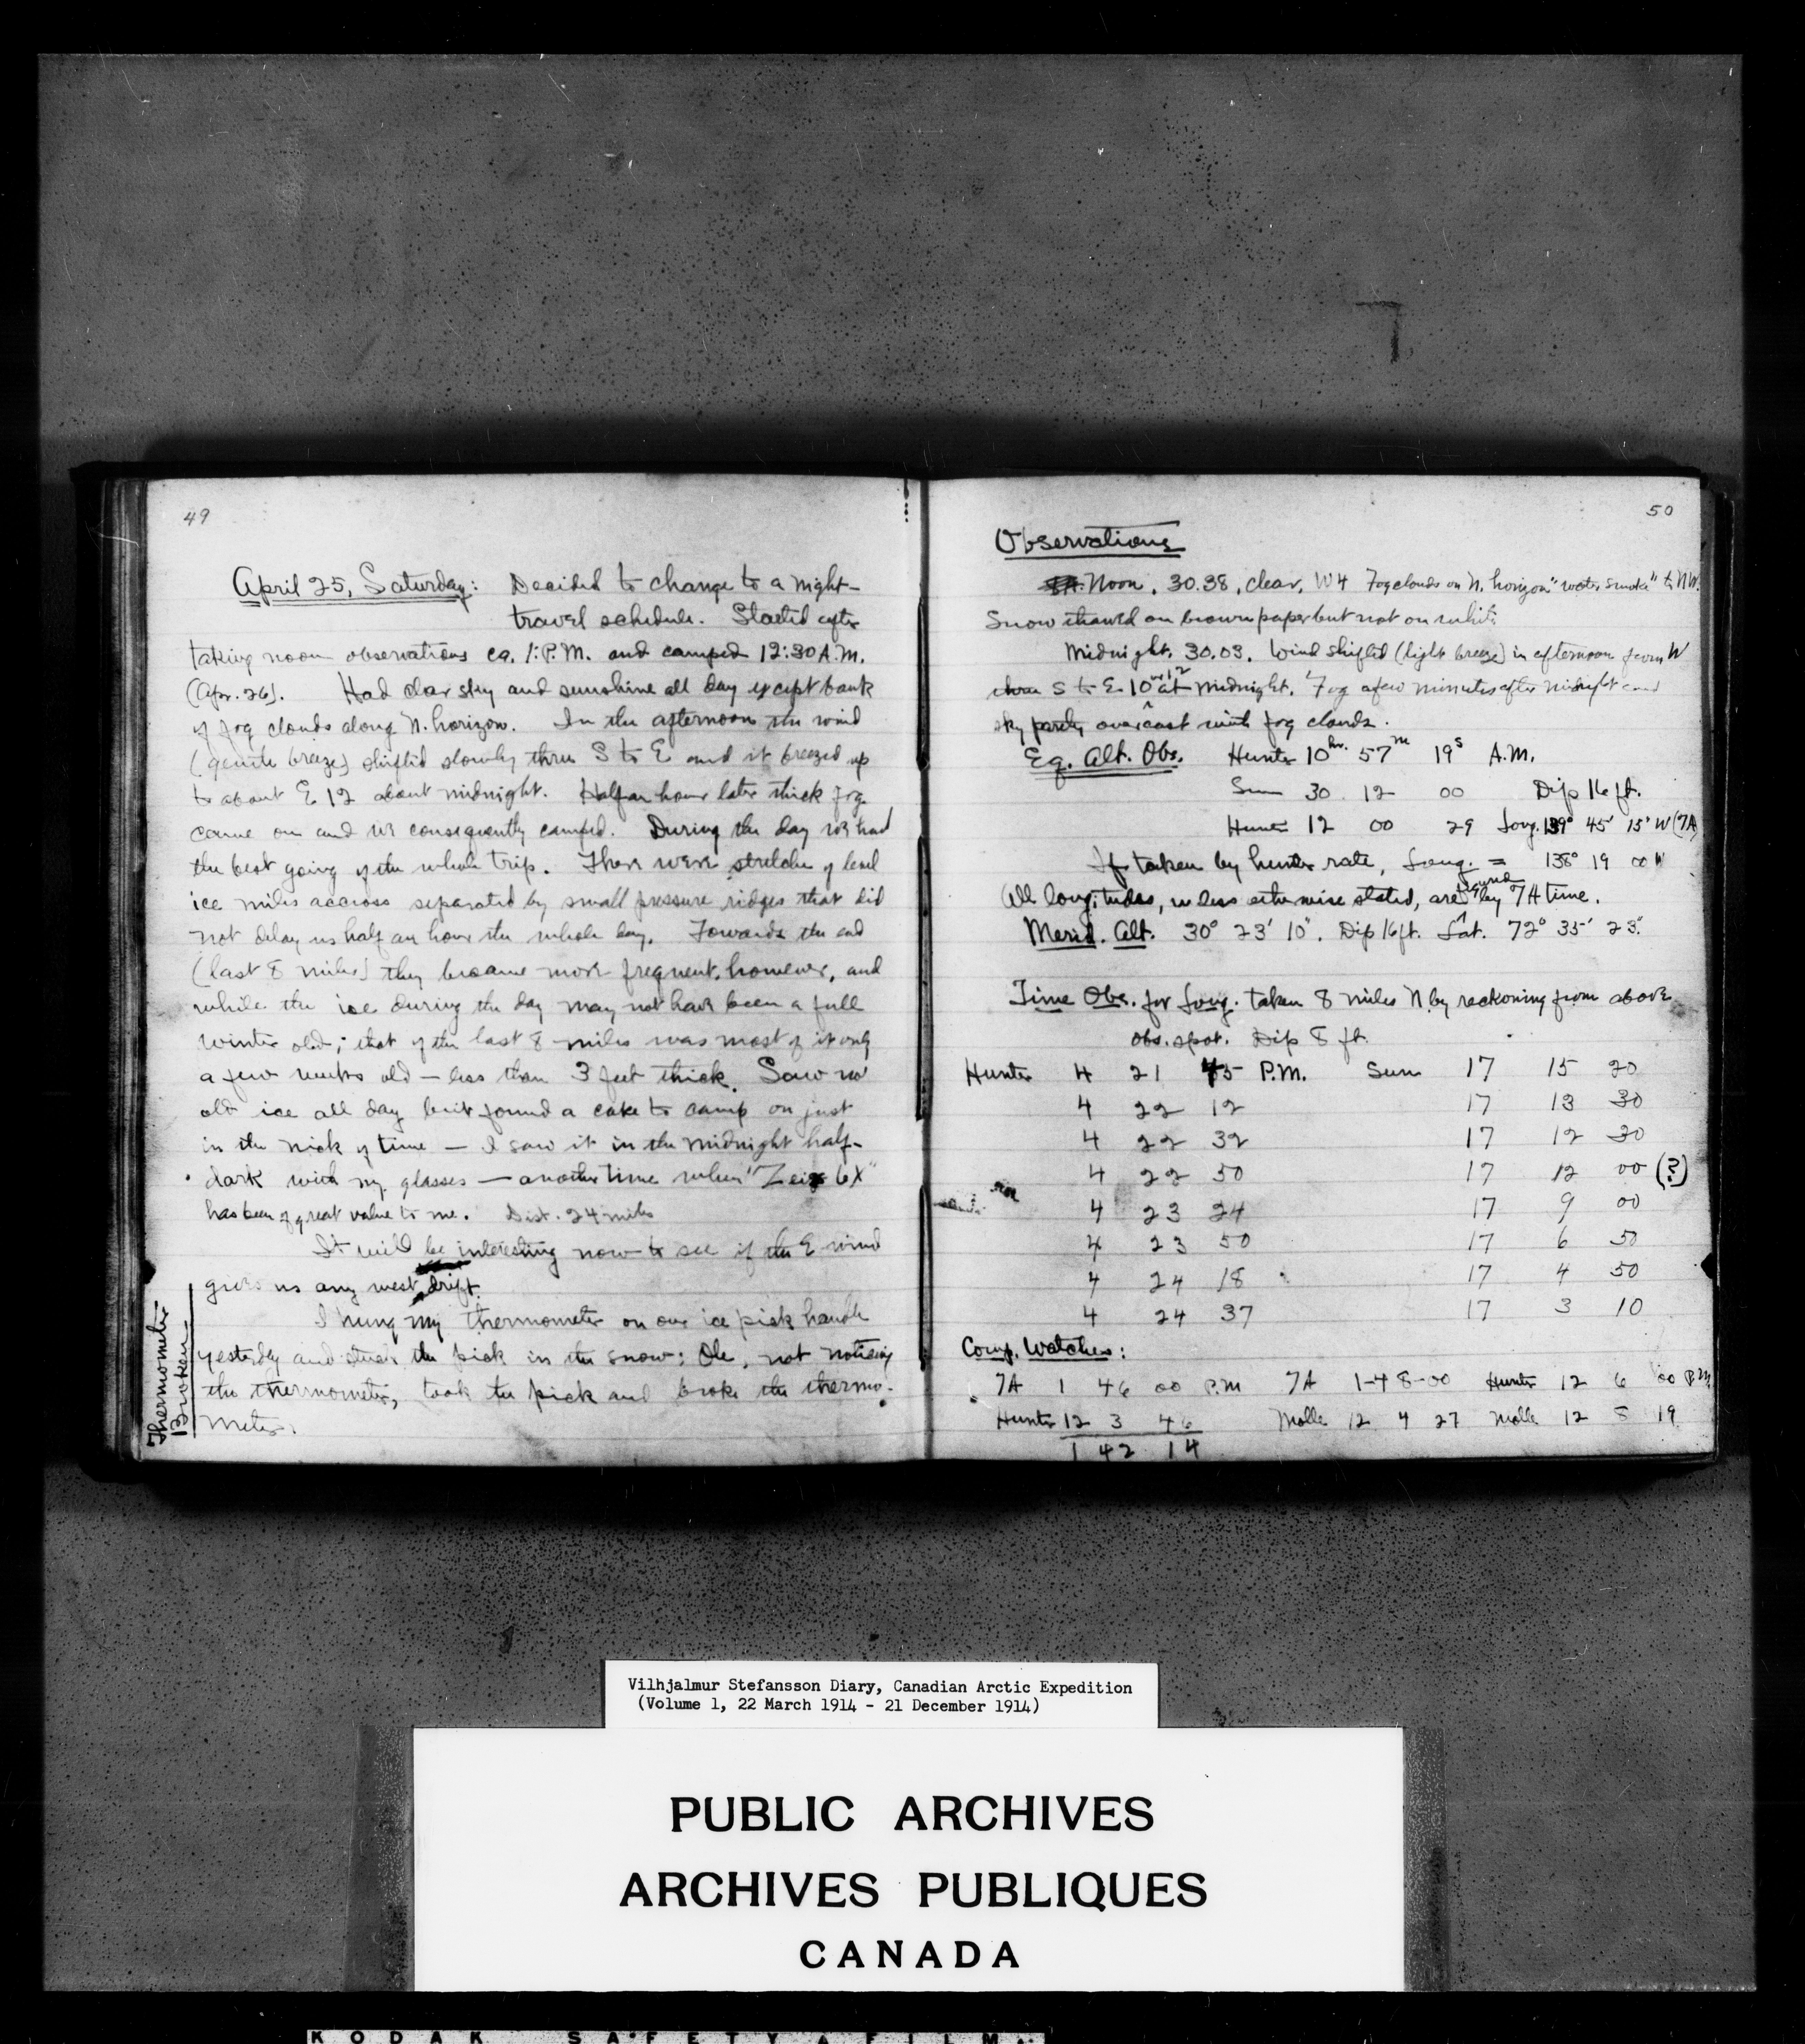 49
April 25, Saturday: Decided to change to a night-
travel schedule. Started after
taking noon observations ca. 1:P.M. and camped 12:30 A.M.
(Apr. 26). Had clear sky and sunshine all day except bank
of fog clouds along N. horizon. In the afternoon the wind
(gentle breeze) shifted slowly thru S to E and it breezed up
to about E 12 about midnight. Half an hour later thick fog
came on and we consequently camped. During the day we had
the best going of the whole trip. There were stretches of level
ice miles accross separated by small pressure ridges that did
not delay us half an hour the whole day. Towards the end
(last 8 miles) they became more frequent, however, and
while the ice during the day may not have been a full
winter old; that of the last 8 miles was most of it only
a few weeks old — less than 3 feet thick. Saw no
old ice all day but found a cake to camp on just
in the nick of time — I saw it in the midnight half-
dark with my glasses — another time when "Zeiss 6X"
has been of great value to me. Dist. 24 miles
It will be interesting now to see if the E wind
gives us any west drift.
I hung my thermometer on our ice pick handle
yesterday and stuck the pick in the snow; Ole, not noticing
the thermometer, took the pick and broke the thermo-
meter.
Thermometer
Broken
50
Observations
Noon, 30.38, clear, W4 Fog clouds on N. horizon "water smoke" to NW.
Snow thawed on brown paper but not on white
Midnight, 30.03. Wind shifted (light breeze) in afternoon from W
thru S to E 10 or 12 at midnight. Fog a few minutes after midnight and
sky partly overcast with fog clouds.
Eq. Alt. Obs. Hunter 10hr. 57m 19s A.M.
Sun 30 12 00 Dip 16 ft.
Hunter 12 00 29 Long. 139° 45' 15" W (7A)
If taken by hunter rate, Long. = 138° 19 00 W
All longitudes, unless otherwise stated, are figured by 7A time.
Merid. Alt. 30° 23' 10". Dip 16 ft. Lat. 72° 35' 23".
Time Obs. for Long. taken 8 miles N by reckoning from above
obs. spot. Dip 8 ft.
Hunter 4 21 45 P.M. Sun 17 15 20
4 22 12 17 13 30
4 22 32 17 12 30
4 22 50 17 12 00 (?)
4 23 24 17 9 00
4 23 50 17 6 50
4 24 18 17 4 50
4 24 37 17 3 10
Comp. Watches:
7A 1 46 00 P.M 7A 1-48-00 Hunter 12 6 00 P.M.
Hunter 12 3 46 Molle 12 4 27 Molle 12 8 19
1 42 14
Vilhjalmur Stefansson Diary, Canadian Arctic Expedition
(Volume 1, 22 March 1914 - 21 December 1914)
PUBLIC ARCHIVES
ARCHIVES PUBLIQUES
CANADA
KODAK SAFETY FILM